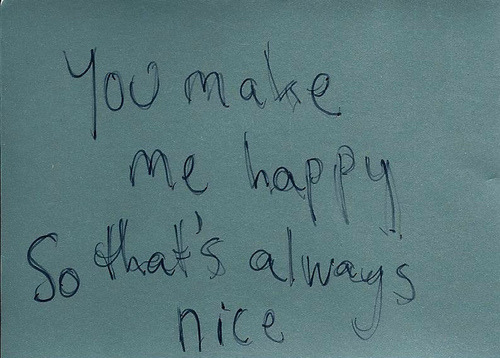 You make
me happy
So that's always
nice